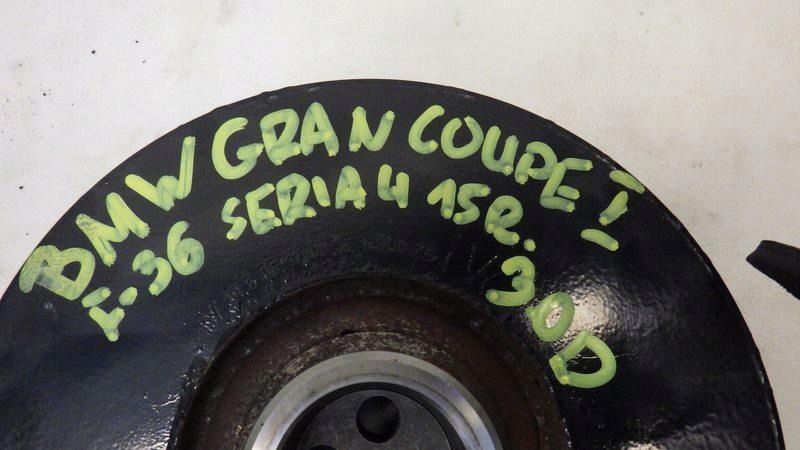 BMW GRAN COUPE I
F-36 SERIA 4 15R. 3.0D